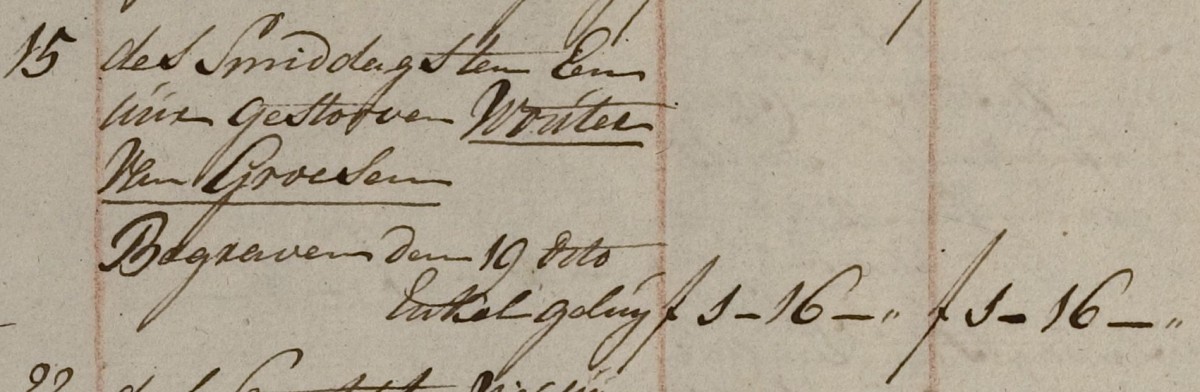 15 des Smiddags ten Een
uur gestorven Wouter
Van Groesen
Begraven den 19 dito
Enkel geluy f 1-16-„ f 1-16-„
22